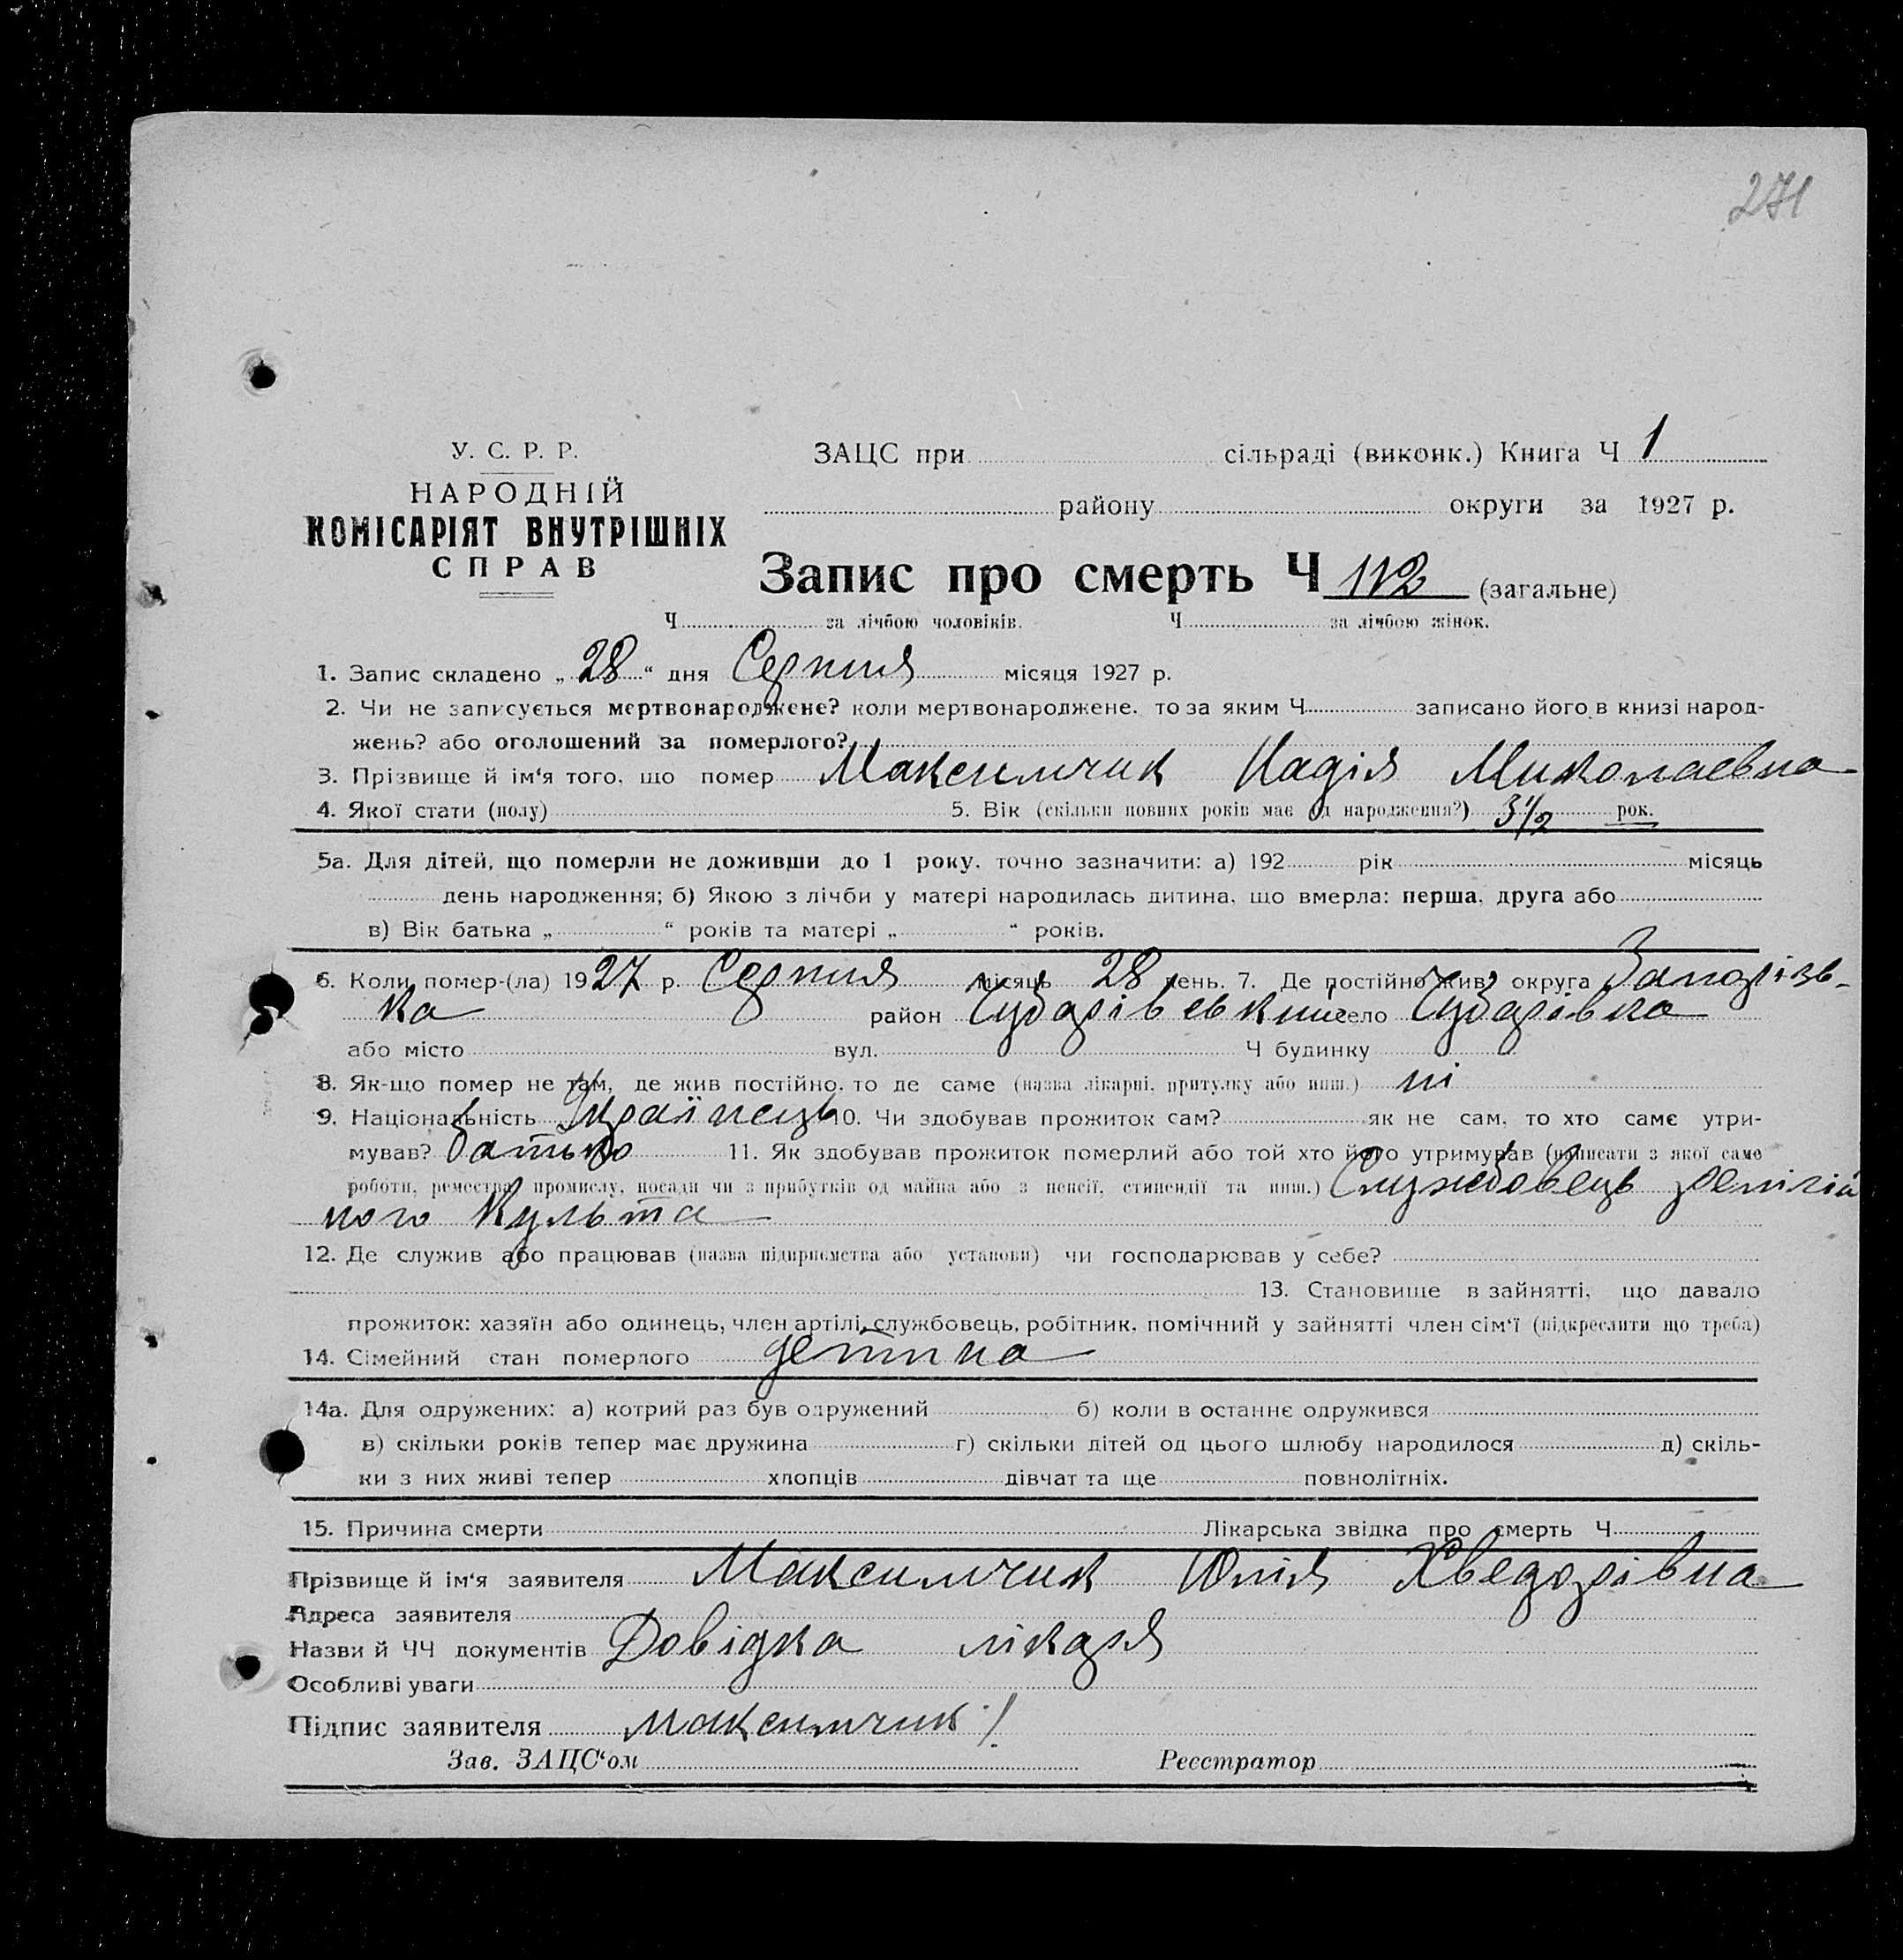 271
У. С. Р. Р.
НАРОДНІЙ
КОМІСАРІЯТ ВНУТРІШНІХ
СПРАВ
ЗАЦС при сільраді (виконк.) Книга Ч 1
району округи за 1927 р.
Запис про смерть Ч 112 (загальне)
Ч за лічбою чоловіків. Ч за лічбою жінок.
1. Запис складено „ 28 “ дня Серпня місяця 1927 р.
2. Чи не записується мертвонароджене? коли мертвонароджене, то за яким Ч записано його в книзі народ-
жень? або оголошений за померлого?
3. Прізвище й ім‘я того, що помер Максимчик Надія Миколаевна
4. Якої стати (полу) 5. Вік (скільки повних років має од народження?) 3 1/2 рок.
5а. Для дітей, що померли не доживши до 1 року, точно зазначити: а) 192 рік місяць
день народження; б) Якою з лічби у матері народилась дитина, що вмерла: перша, друга або
в) Вік батька „ “ років та матері „ “ років.
6. Коли помер-(ла) 1927 р. Серпня місяць 28 день. 7. Де постійно жив? округа Запорізь-
ка район Цубарівський село Цубарівка
або місто вул. Ч будинку
8. Як-що помер не там, де жив постійно, то де саме (назва лікарні, притулку або инш.) ні
9. Національність Українець 10. Чи здобував прожиток сам? як не сам, то хто саме утри-
мував? батько 11. Як здобував прожиток померлий або той хто його утримував (написати з якої саме
роботи, ремества, промислу, посади чи з прибутків од майна або з пенсії, стипендії та инш.) Службовець релігій
ного Культа
12. Де служив або працював (назва підприємства або установи) чи господарював у себе?
13. Становище в зайнятті, що давало
прожиток: хазяїн або одинець, член артілі, службовець, робітник, помічний у зайнятті член сім‘ї (підкреслити що треба)
14. Сімейний стан померлого детина
14а. Для одружених: а) котрий раз був одружений б) коли в останнє одружився
в) скільки років тепер має дружина г) скільки дітей од цього шлюбу народилося д) скіль-
ки з них живі тепер хлопців дівчат та ще повнолітніх.
15. Причина смерти Лікарська звідка про смерть Ч
Прізвище й ім‘я заявителя Максимчик Юлія Хведорівна
Адреса заявителя
Назви й ЧЧ документів Довідка лікаря
Особливі уваги
Підпис заявителя Максимчик
Зав. ЗАЦС‘ом Реєстратор